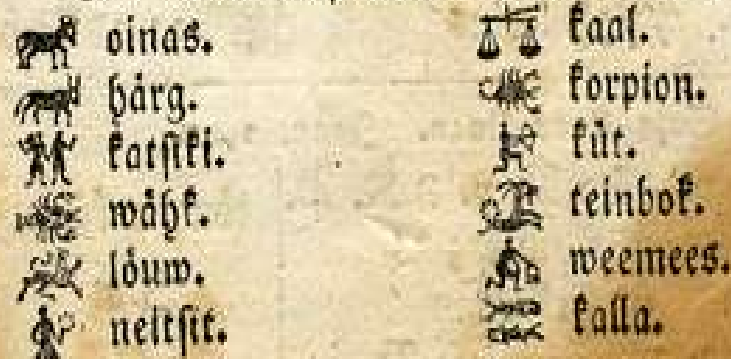 oinas.
härg.
katſiki.
wähk.
löuw.
neitſit.
kaal.
korpion.
küt.
teinbok.
weemees.
kalla.